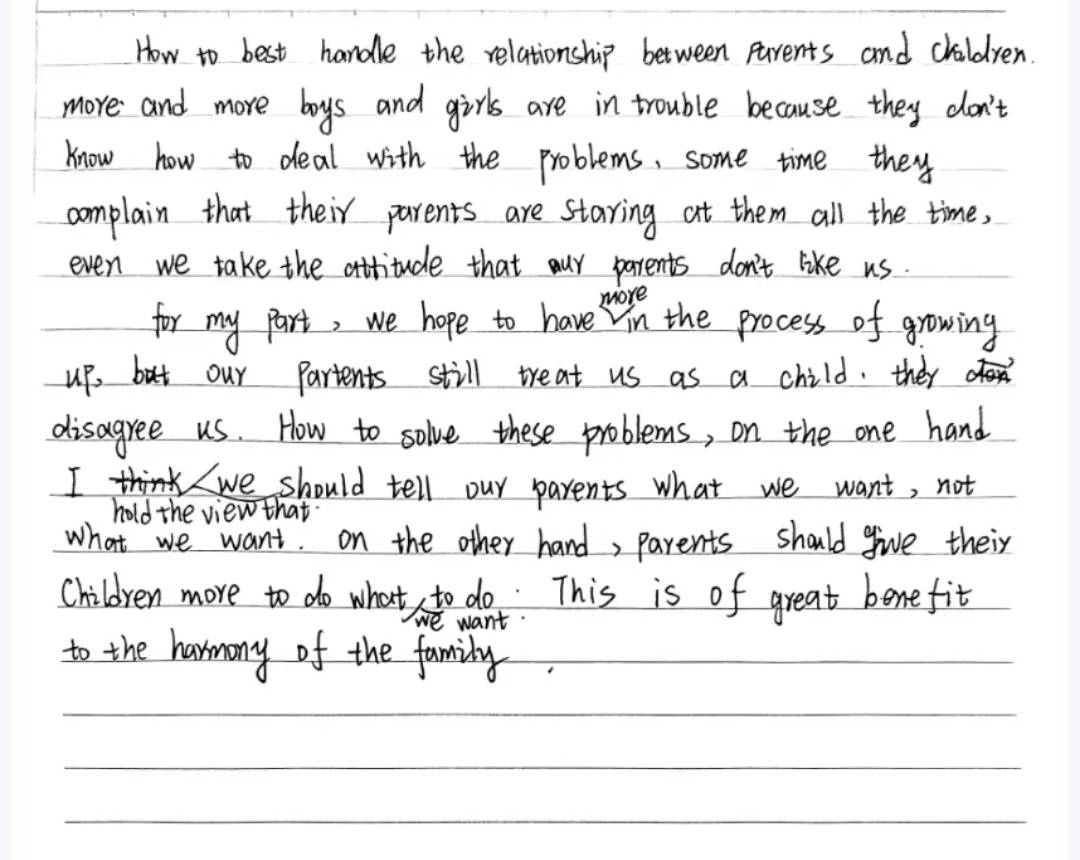 How to best handle the relationship between parents and children.
more and more boys and girls are in trouble because they don't
know how to deal with the problems, some time they
complain that their parents are staring at them all the time,
even we take the attitude that our parents don't like us.
for my part, we hope to have more in the process of growing
up, but our partents still treat us as a child. they
disagree us. How to solve these problems, on the one hand
I think hold the view that we should tell our parents what we want, not
what we want. on the other hand, parents should give their
children more to do what we want to do. This is of great benefit
to the harmony of the family.